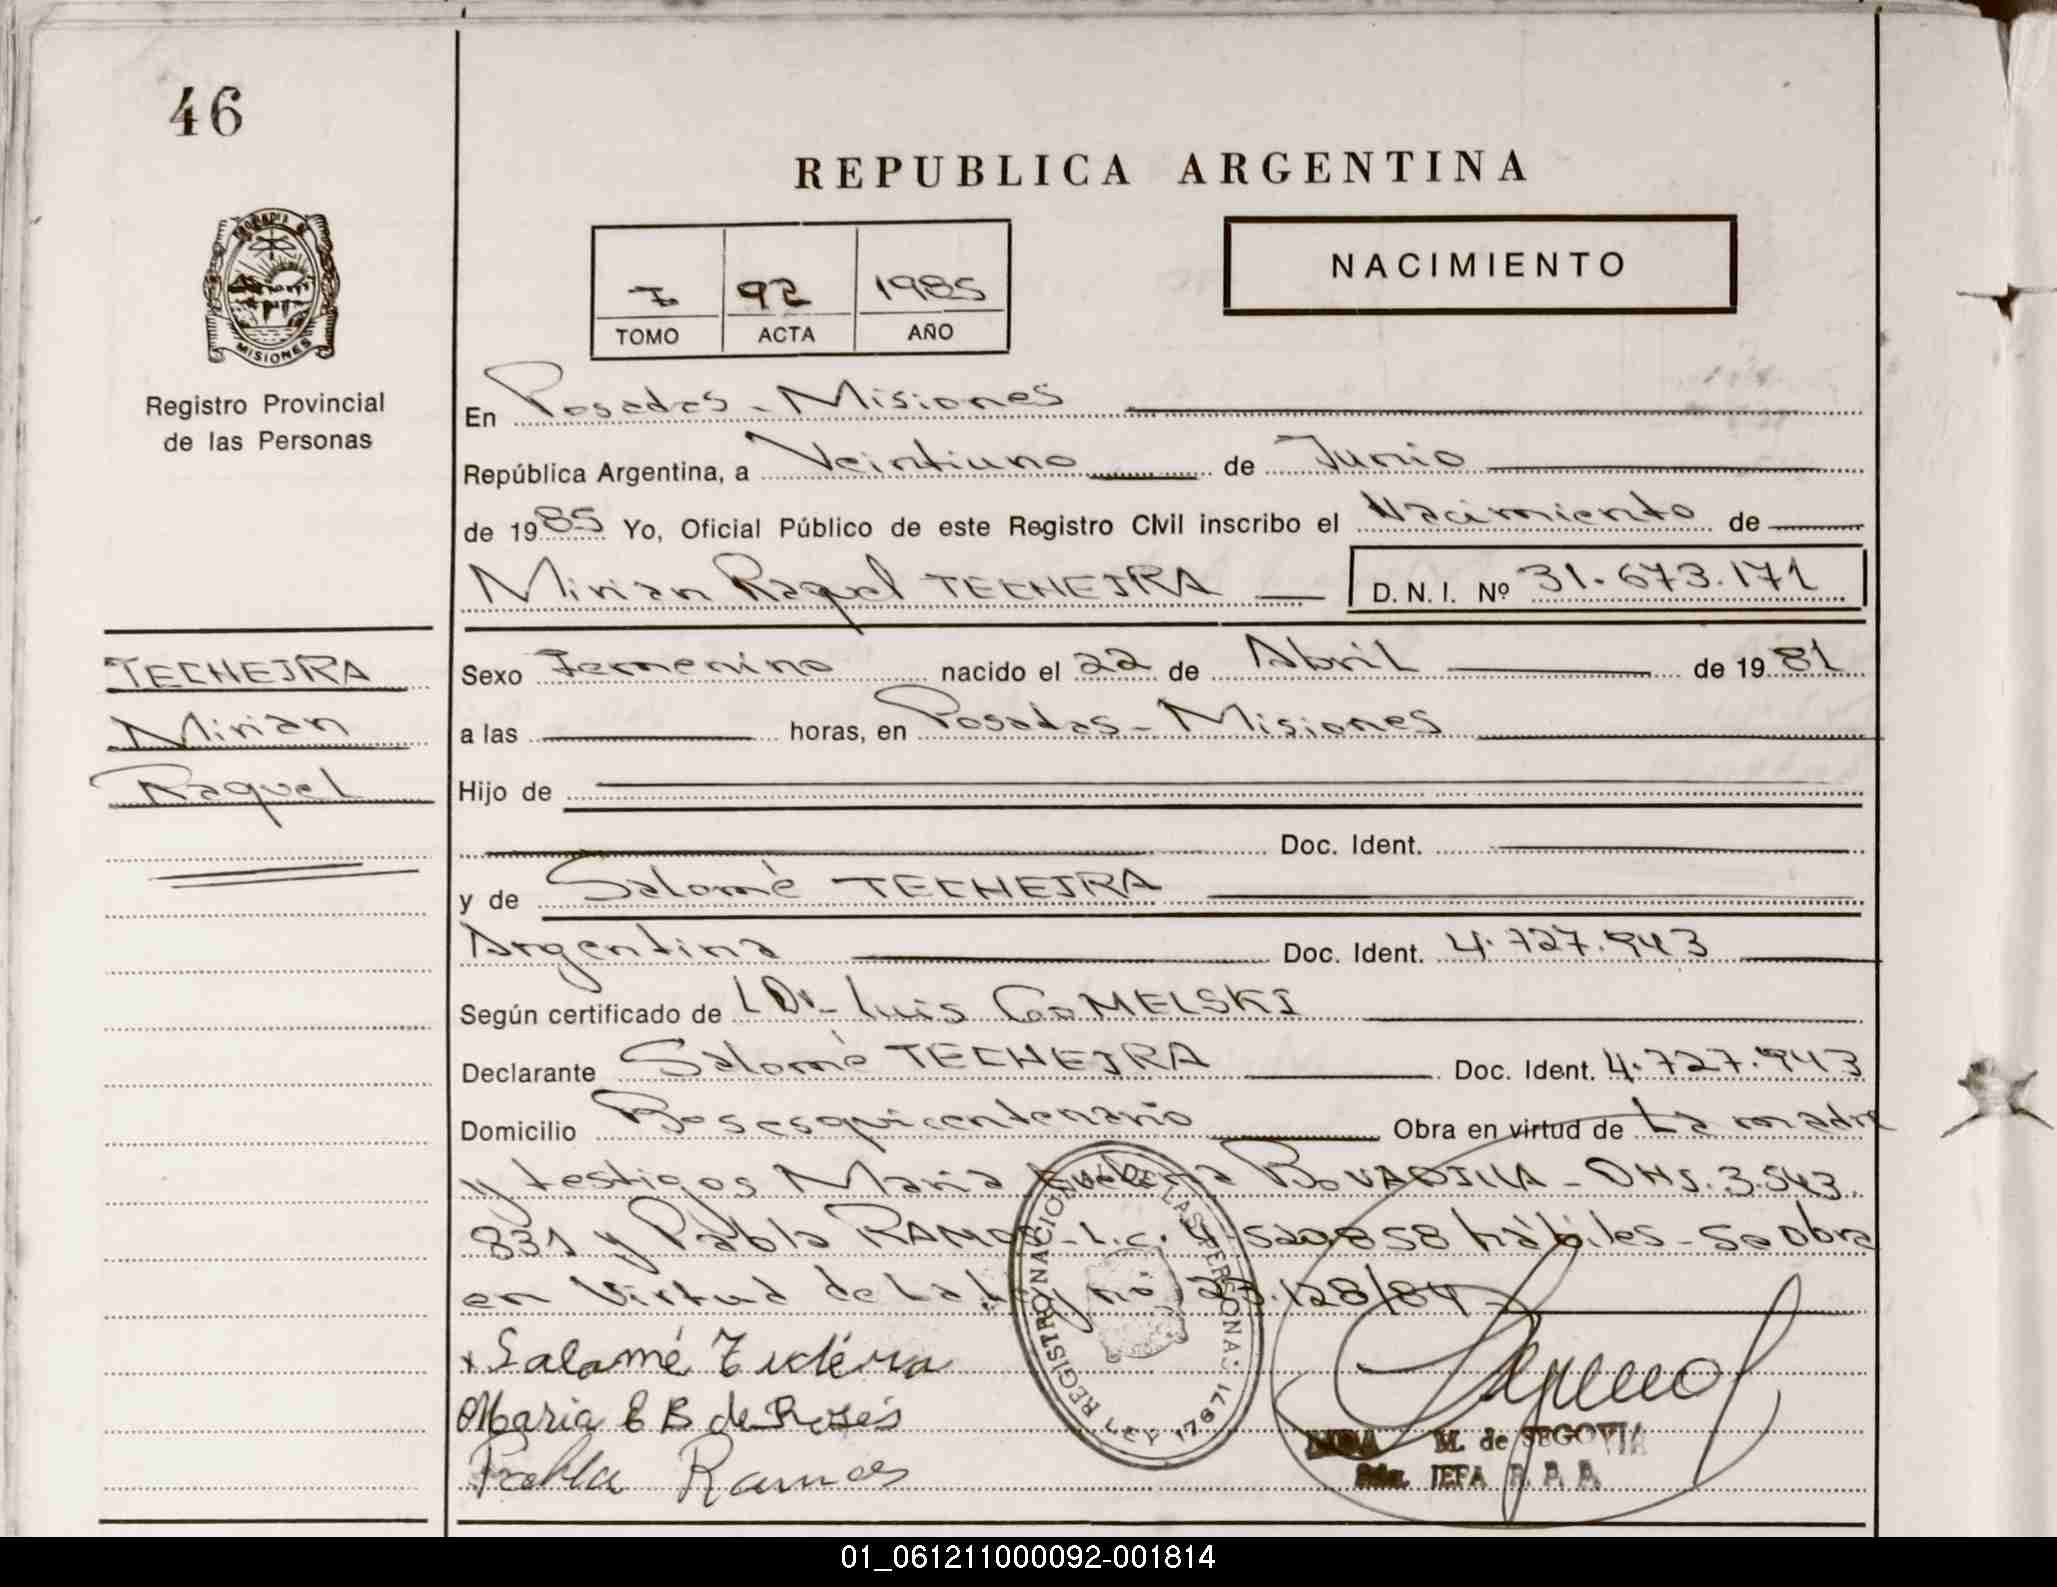 46
REPUBLICA ARGENTINA
PROVINCIA DE
MISIONES
Registro Provincial
de las Personas
I 92 1985
TOMO ACTA AÑO
NACIMIENTO
En Posadas - Misiones
República Argentina, a Veintiuno de Junio
de 1985 Yo, Oficial Público de este Registro Civil inscribo el Nacimiento de
Mirian Raquel TECHEIRA D. N. I. Nº 31.673.171
TECHEIRA
Mirian
Raquel
Sexo Femenino nacido el 22 de Abril de 1981
a las horas, en Posadas - Misiones
Hijo de
Doc. Ident.
y de Salomé TECHEIRA
Argentina Doc. Ident. 4.727.943
Según certificado de Dr. Luis GOMELSKI
Declarante Salomé TECHEIRA Doc. Ident. 4.727.943
Domicilio Bosesquicentenario Obra en virtud de La madre
y testigos Maria BOVADILLA - DNI. 3.543.
831 y Pabla RAMOS - L.C. 4.520.858 hábiles - Se obra
en Virtud de La Ley nº 23.128/84
Salomé
Maria E B de Rosés
Pabla Ramos
REGISTRO NACIONAL DE LAS PERSONAS
LEY 17671
M. de SEGOVIA
JEFA R. A. A.
01_061211000092-001814